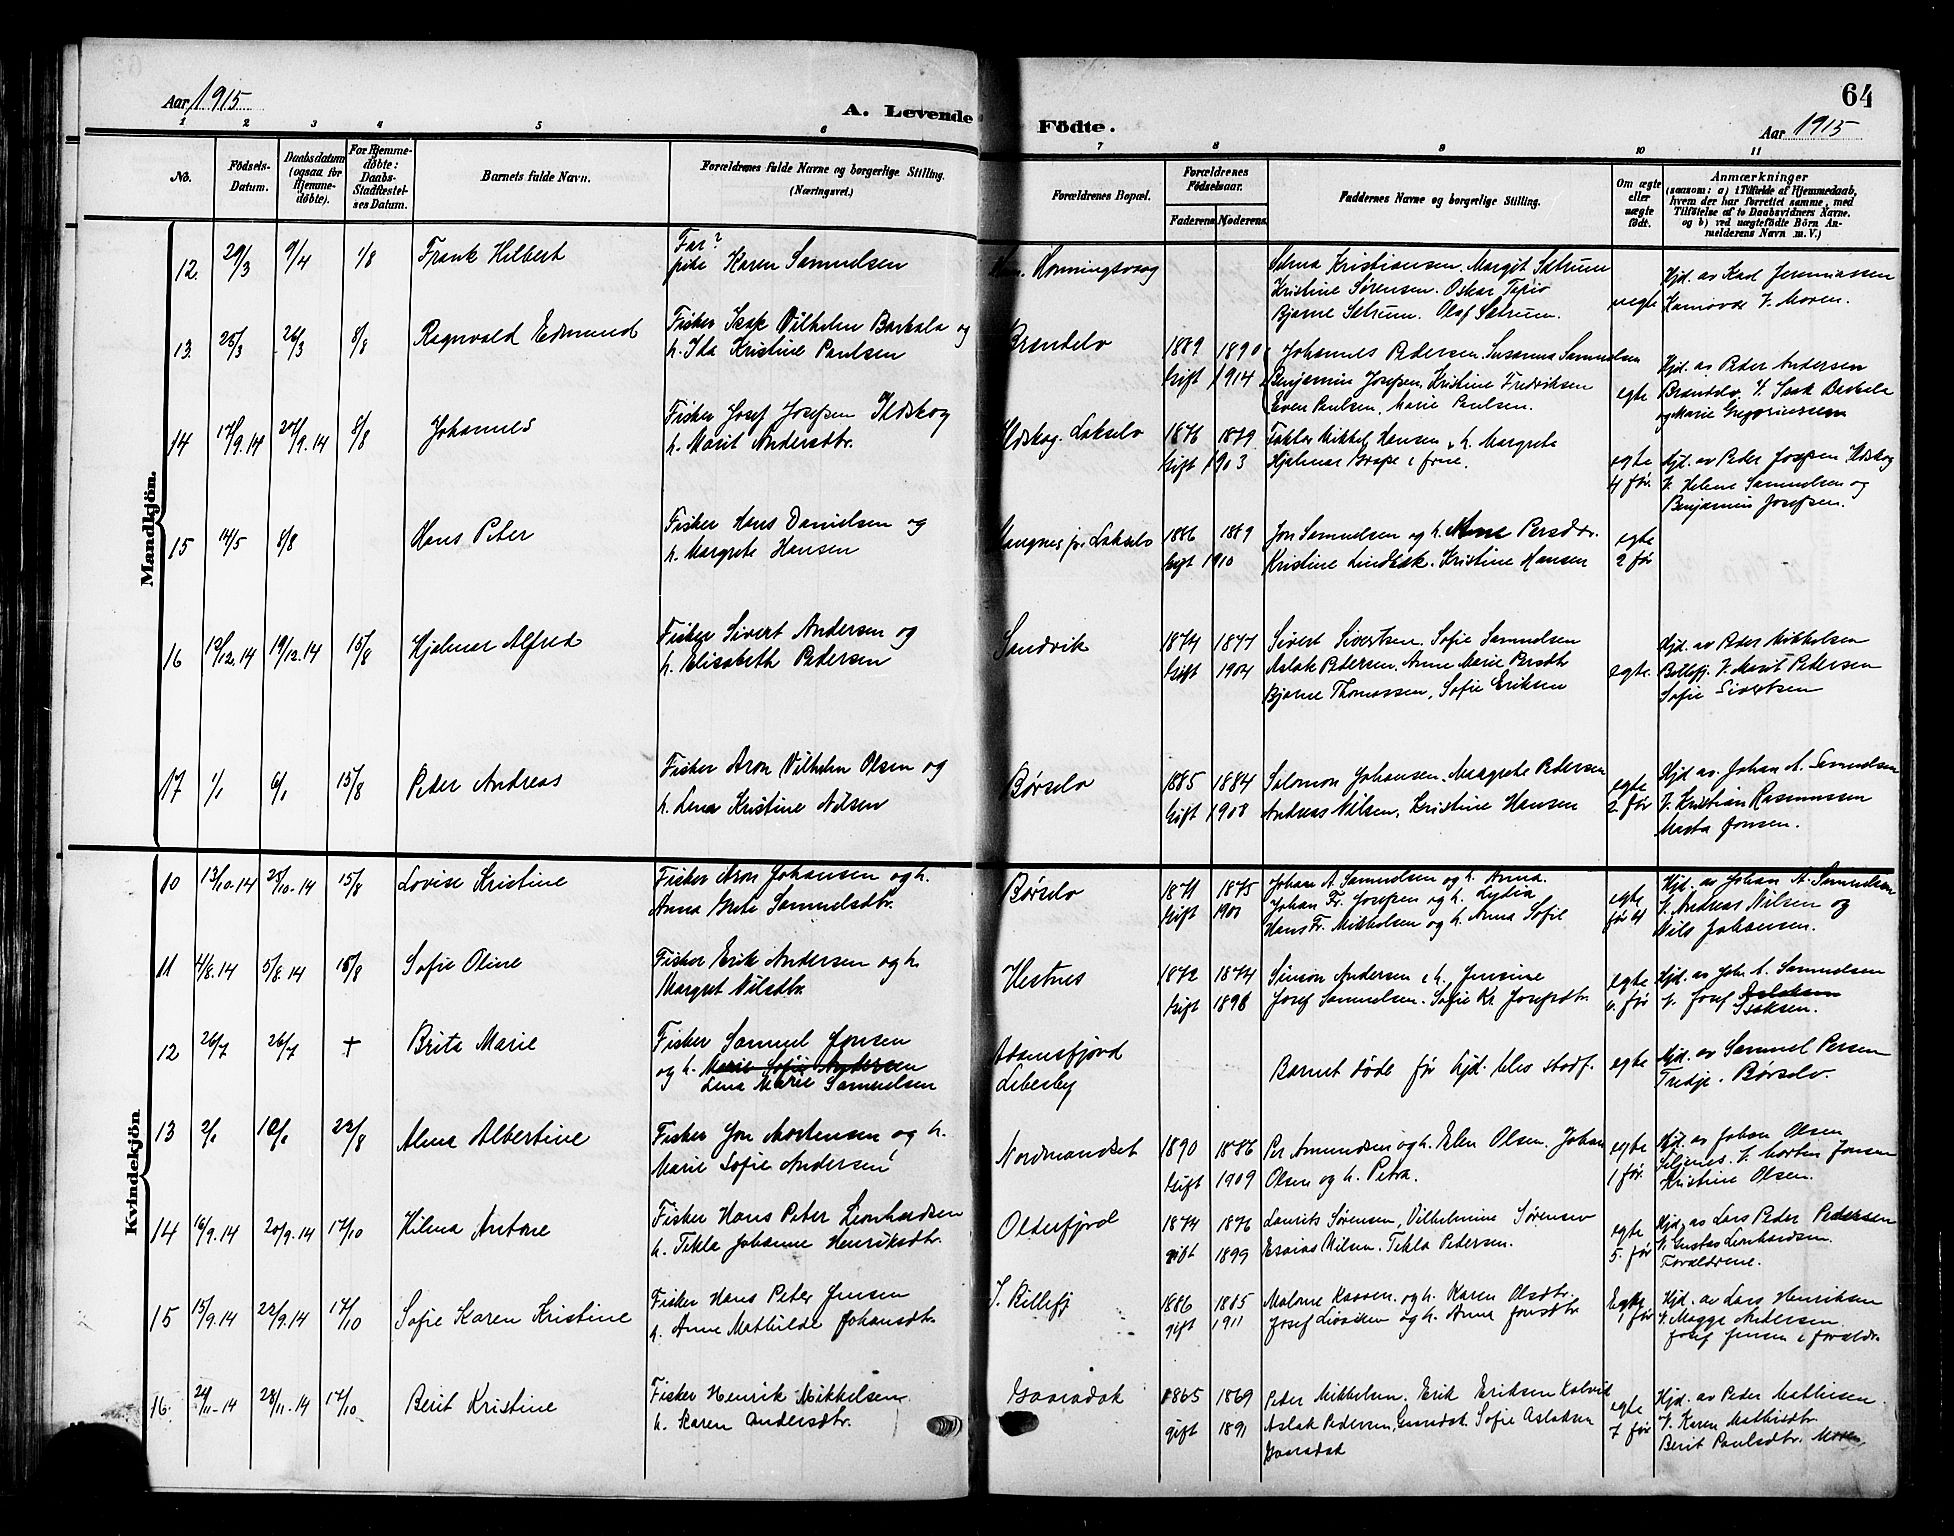 Aar 1915
A. Levende Födte.
64
Aar 1915
1 2 3 4 5 6 7 8 9 10 11
No.
Födsels-Datum.
Daabsdatum (ogsaa for Hjemmedöbte).
For Hjemmedöbte: Daabs-Stadfæstelses Datum.
Barnets fulde Navn.
Forældrenes fulde Navne og borgerlige Stilling. (Næringsvei.)
Forældrenes Bopæl.
Forældrenes Födselsaar.
Faderens. Moderens.
Faddernes Navne og borgerlige Stilling.
Om ægte eller uægte født.
Anmærkninger
(saasom: a) i Tilfælde af Hjemmedaab, hvem der har forrettet samme, med Tilföielse af to Daabsvidners Navne, og b) ved uægtefödte Börn Anmelderens Navn m. V.)
Mandkjön.
12. 29/3 9/4 1/8 Frank Hilbert
Far?
pike Karen Samuelsen
Honningsvaag
Selma Kristiansen. Margit Sætrum
Kristine Sørensen. Oskar
Bjarne Sætrum. Olaf Sætrum.
uegte
Hjd. av Karl Jeremiassen
Kamøvær V. Moren.
13. 25/3 26/3 8/8 Ragnvald Edmund
Fisker Isak Vilhelm Barkala og
h. Ida Kristine Paulsen
Brændelv
1889 1890
Gift 1914
Johannes Pedersen. Susanna Samuelsen
Benjamin Josefsen. Kristine Fredriksen
Even Paulsen. Marie Paulsen.
egte
Hjd. av Peder Andersen
Brændelv. V. Isak Barkala
og Marie Gregoriussen
14 17/9.14 27/9.14 8/8 Johannes
Fisker Josef Josefsen Ildskog
h. Marit Andersdtr.
Ildskog. Lakselv
1876 1879
Gift 1903
Faktor Mikkel Hansen, h. Margrete
Hjalmar Grape i frue.
egte
4 før.
Hjd. av Peder Josefsen Ildskog
V. Helene Samuelsen og
Benjamin Josefsen.
15 14/5 8/8 Hans Peter
Fisker Hans Danielsen og
h. Margrete Hansen
Lakselv
1886 1889
Gift 1910
Jon Samuelsen og h. Anne Persdtr.
Kristine Lindbak. Kristine Hansen
egte
2 før
16 19/12.14 19/12.14 15/8 Hjalmar Alfred
Fisker Sivert Andersen og
h. Elisabeth Pedersen
Sandvik
1874 1877
Gift 1904
Sivert Sivertsen. Sofie Samuelsen
Aslak Pedersen. Anne Marie Persdtr
Bjarne Thomassen, Sofie Eriksen
egte.
Hjd. av Peder Mikkelsen
V. Marit Pedersen
Sofie Sivertsen
17 1/1 6/1 15/8 Peder Andreas
Fisker Aron Vilhelm Olsen og
h. Lena Kristine Nilsen
Børselv
1885 1884
Gift 1908
Salomon Johansen. Margrete Pedersen
Andreas Nilsen, Kristine Hansen
egte
2 før
Hjd. av. Johan A. Samuelsen
V. Kristian Rasmussen
Marta Jonsen.
Kvindekjön
10 13/10-14 25/10-14 15/8 Lovise Kristine
Fisker Aron Johansen og h.
Anna Grete Samuelsdtr.
Børselv
1871 1875
Gift 1900
Johan A. Samuelsen og h. Anna.
Johan Fr. Josefsen og h. Lydia
Hans Fr. Mikkelsen og h. Anna Sofie
egte
før 4
Hjd. av Johan A. Samuelsen
V. Andreas Nilsen og
Nils Johansen.
11 4/8.14 5/8.14 15/8 Sofie Oline
Fisker Erik Andersen og h.
Margret Nilsdtr.
Vestnes
1872 1874
Gift 1898
Simon Andersen i h. Jensine
Josef Samuelsen. Sofie Kr. Josefsdtr.
egte
6. før
Hjd. av Joh. A. Samuelsen
V. Josef
Isaksen.
12 26/7 26/7 + Brita Marie
Fisker Samuel Jonsen
og h. Marie Sofie Andersen
Lena Marie Samuelsen
Adamsfjord
Lebesby
Barnet døde før hjd. blev stadf.
egte
Hjd. av Samuel Persen
Tredje. Børselv.
13 2/1 10/1 22/8 Alma Albertine
Fisker Jon Mortensen og h.
Marie Sofie Andersen
Nordmandset
1890 1886
Gift 1909
Per Amundsen og h. Elen Olsen. Johan
Olsen og h. Petra.
egte
1 før.
Hjd. av Johan Olsen
V. Morten Jonsen
Kristine Olsen.
14 16/9.14 20/9.14 17/10 Hilma Antone
Fisker Hans Peter Leonhardsen
h. Tekla Johanne Henriksdtr.
Olderfjord
1874 1876
gift 1899
Laurits Sørensen, Vilhelmine Sørensen
Esaias Nilsen. Tekla Pedersen.
egte
5. før
Hjd. av Lars Peder Pedersen
V. Gustav Leonhardsen.
Forældrene.
15 15/9.14 22/9.14 17/10 Sofie Karen Kristine
Fisker Hans Peter Jensen
h. Anne Mathilde Johansdtr.
1886 1885
gift 1911
og h. Karen Olsdtr.
Josef og h. Anna Jonsdtr
Egte
1 før
Hjd. av Lars Henriksen
V. Magga Andersen.
Josef Jensen i forældr.
16. 24/11-14 28/11-14 17/10 Berit Kristine
Fisker Henrik Mikkelsen
h. Karen Andersdtr.
1865 1869
gift 1891
Peder Mikkelsen. Erik Eriksen Kolvik
Aslak Pedersen, Sofie Aslaksen
egte
7 før
Hjd. av Peder Mathisen
V. Karen Mathisdtr.
Berit Paulsdtr.